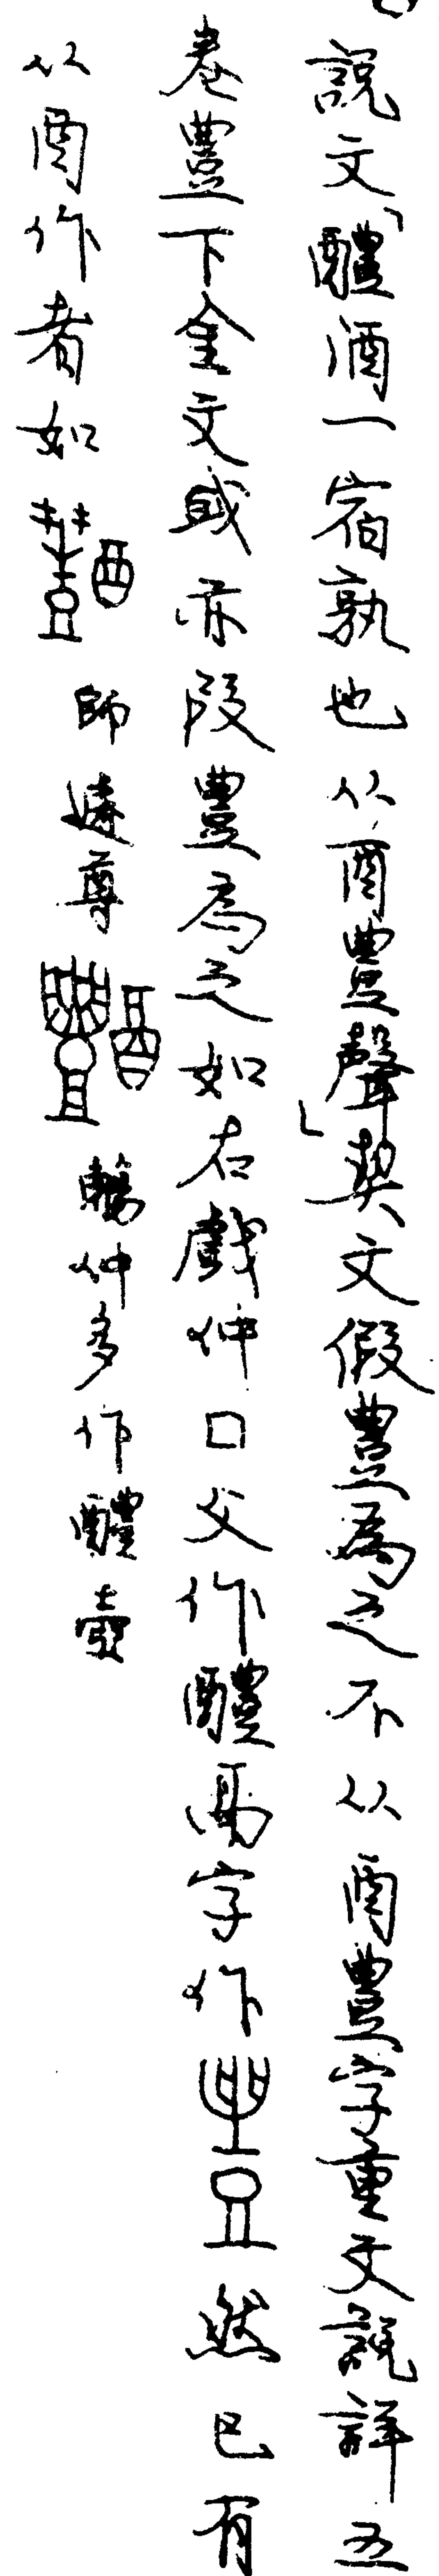 說文「醴酒一宿孰也从酉豊聲」契文假豊為之不从酉豊字重文說詳五
卷豊下金文或亦段豊為之如右戲仲口父作醴鬲字作然已有
从酉作者如師遽尊仲多作醴壺